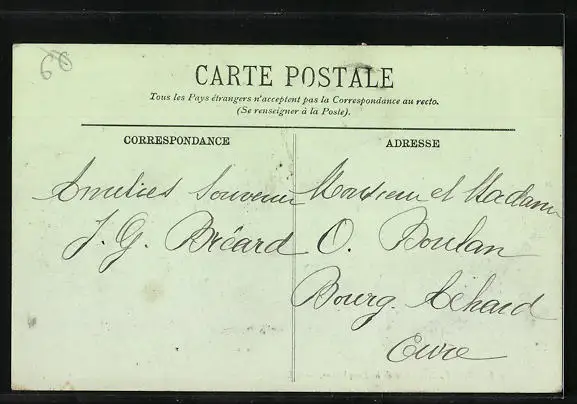 60
CARTE POSTALE
Tous les Pays étrangers n'acceptent pas la Correspondance au recto.
(Se renseigner à la Poste).
CORRESPONDANCE
Amitiés Souvenir
J. G. Bréard
ADRESSE
Monsieur et Madame
O. Boulan
Bourg. Achard
Eure